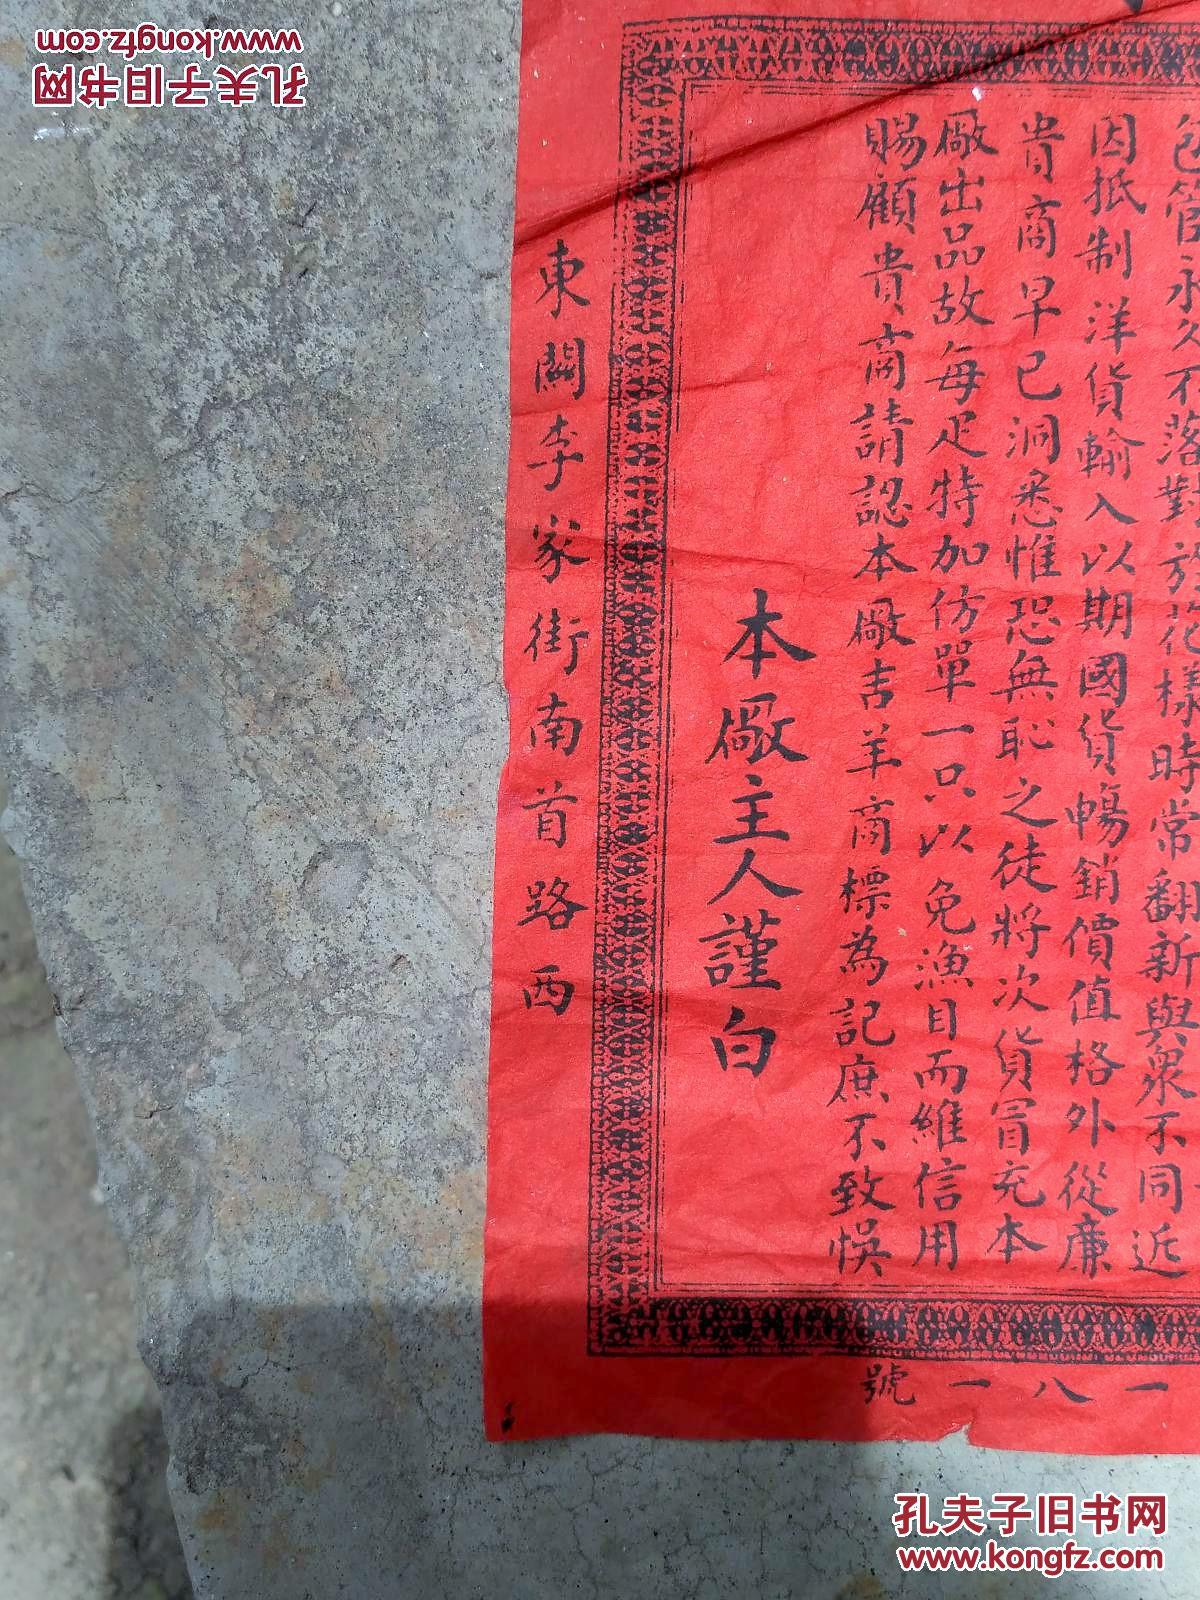 包管永久不落對於花樣時常翻新與衆不同近
因抵制洋貨輸入以期國貨暢銷價值格外從廉
貴商早已洞悉惟恐無恥之徒將次貨冒充本
廠出品故每疋特加仿單一只以免漁目而維信用
賜顧貴商請認本廠吉羊商標為記庶不致悞
本廠主人謹白
東關李家街南首路西
號一八一
孔夫子旧书网
www.kongfz.com
孔夫子旧书网
www.kongfz.com